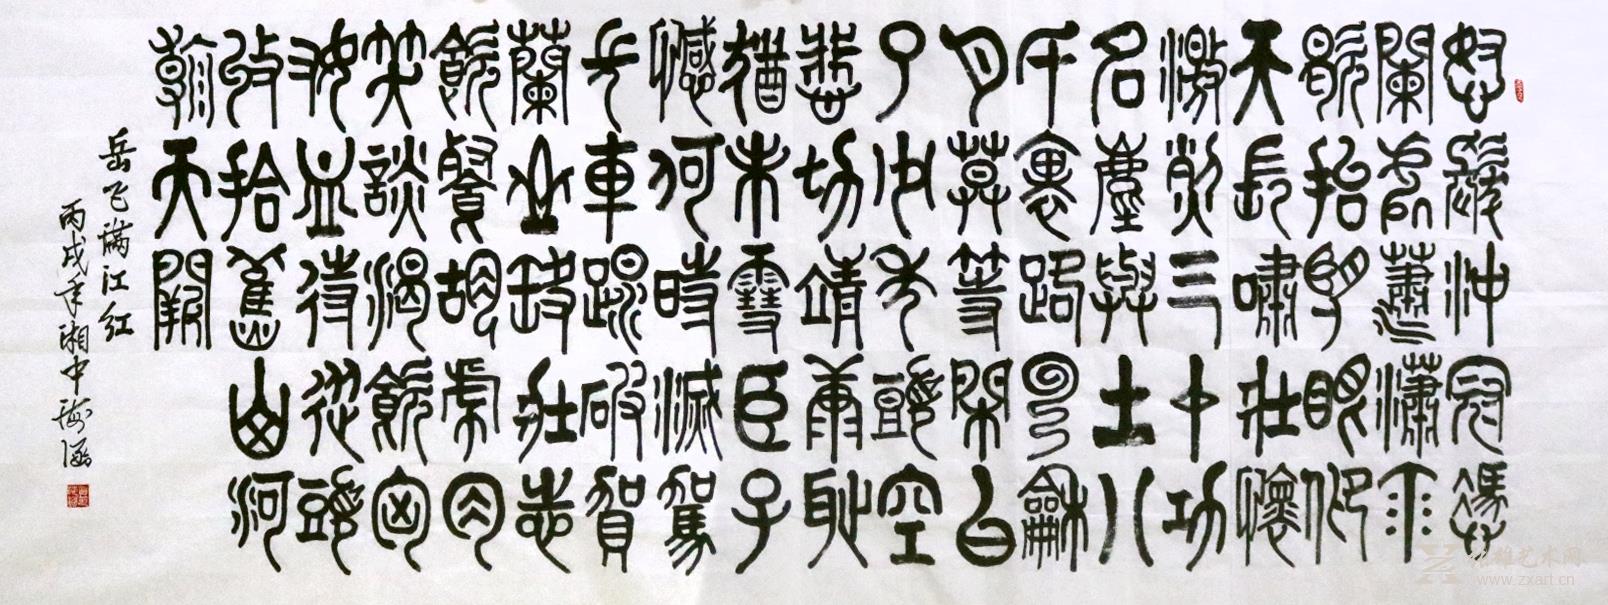 怒髮沖冠憑
闌處蕭瀟雨
歇抬望眼仰
天長嘯壯懷
激烈三十功
名塵與土八
千裏路雲和
月莫等閑白
了少年頭空
悲切靖康恥
猶未雪臣子
憾何時滅駕
長車踏破賀
蘭山缺壯志
飢餐胡虜肉
笑談渴飲匈
奴血待從頭
收拾舊山河
朝天闕
岳飞滿江红
丙戌年湘中海涵
雄艺术网
www.zxart.cn